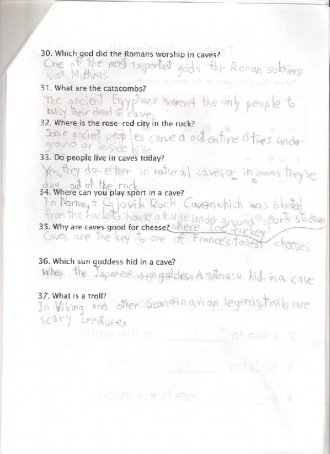 30. Which god did the Romans worship in caves?
One of the most important gods for Roman soldiers
was Mithras
31. What are the catacombs?
The ancient Egyptians weren't the only people to
bury their dead in caves
32. Where is the rose-red city in the rock?
Some anciet peoples carved out entire cities under
ground or inside hills
33. Do people live in caves today?
Yes, they do-either in natural caves or in rooms they've
dug out of the rock
34. Where can you play sport in a cave?
In Norway's Gjovik Rock Cavern which was blasted
from the rock to house a huge underground sports stadium
35. Why are caves good for cheese? where Ice hockey
Caves are the key to one of France's tasiest cheeses
36. Which sun goddess hid in a cave?
When the Japanese sungoddess hid in a cave
37. What is a troll?
In Viking and other Scandinavian legends, trolls are
scary creatures